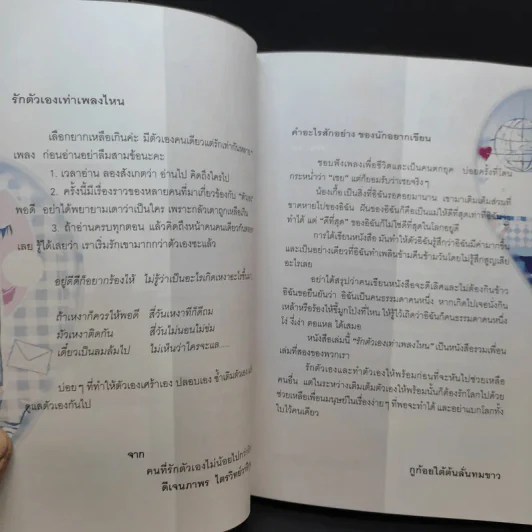 รักตัวเองเท่าเพลงไหน
เลือกยากเหลือเกินค่ะ มีตัวเองคนเดียวแต่รักเท่ากับหลายๆ
เพลง ก่อนอ่านอย่าลืมสามข้อนะคะ
1. เวลาอ่าน ลองสังเกตว่า อ่านไป คิดถึงใครไป
2. ครั้งนี้มีเรื่องราวของหลายคนที่มาเกี่ยวข้องกับ
พอดี อย่าได้พยายามเดาว่าเป็นใคร เพราะกลัวเดาถูกเหลือเกิน
3. ถ้าอ่านครบทุกตอน แล้วคิดถึงหน้าคนคนเดียวกัน
เลย รู้ได้เลยว่า เราเริ่มรักเขามากกว่าตัวเองซะแล้ว
อยู่ดีดีก็อยากร้องไห้ ไม่รู้ว่าเป็นอะไรเกิดเหงาอะไรขึ้นมา
ถ้าเหงาก็ควรให้พอดี สี่วันเหงาทีก็ดีถม
มัวเหงาติดกัน สี่วันไม่นอนไม่ซม
เดี๋ยวเป็นลมล้มไป ไม่เห็นว่าใครจะแล....
บ่อยๆ ที่ทำให้ตัวเองเศร้าเอง ปลอบเอง ซ้ำเติมตัวเอง
ดูแลตัวเองกันไป
จาก
คนที่รักตัวเองไม่น้อยไปกว่า
ดีเจนภาพร ไตรวิทย์
คำอะไรสักอย่าง ของนักอยากเขียน
ชอบฟังเพลงเพื่อชีวิตและเป็นคนตกยุค บ่อยครั้งที่โดน
กระหน่ำว่า "เชย" แต่ก็ยอมรับว่าเชยจริงๆ
น้องเก้อ เป็นสิ่งที่อิฉันรอคอยมานาน เขามาเติมเต็มส่วนที่
ขาดหายไปของอิฉัน ฝันของอิฉันก็คือเป็นแม่ให้ดีที่สุดเท่าที่อิฉัน
ทำได้ แต่ "ดีที่สุด" ของอิฉันก็ไม่ใช่ดีที่สุดในโลกอยู่ดี
การได้เขียนหนังสือ มันทำให้ตัวอิฉันรู้สึกว่าอิฉันมีค่ามากขึ้น
และเป็นอย่างเดียวที่อิฉันทำเพลินข้ามคืนข้ามวันโดยไม่รู้สึกสูญเสีย
อะไรเลย
อย่าได้สรุปว่าคนเขียนหนังสือจะดีเลิศและไม่ต้องกินข้าว
อิฉันขอยืนยันว่า อิฉันเป็นคนธรรมดาคนหนึ่ง หากเกิดไปเจอนั่งกิน
เหล้าหรือร้องไห้ขี้มูกโป่งที่ไหน ให้รู้ไว้เถิดว่าอิฉันก็คนธรรมดาคนหนึ่ง
โง่ งี่เง่า ตอแหล ได้เสมอ
หนังสือเล่มนี้ "รักตัวเองเท่าเพลงไหน" เป็นหนังสือรวมเพื่อน
เล่มที่สองของพวกเรา
รักตัวเองและทำตัวเองให้พร้อมก่อนที่จะหันไปช่วยเหลือ
คนอื่น แต่ในระหว่างเติมเต็มตัวเองให้พร้อมนั้นก็ต้องรักโลกไปด้วย
ช่วยเหลือเพื่อนมนุษย์ในเรื่องง่ายๆ ที่พอจะทำได้ และอย่าแบกโลกทั้ง
ใบไว้คนเดียว
กูก้อยใต้ต้นลั่นทมขาว